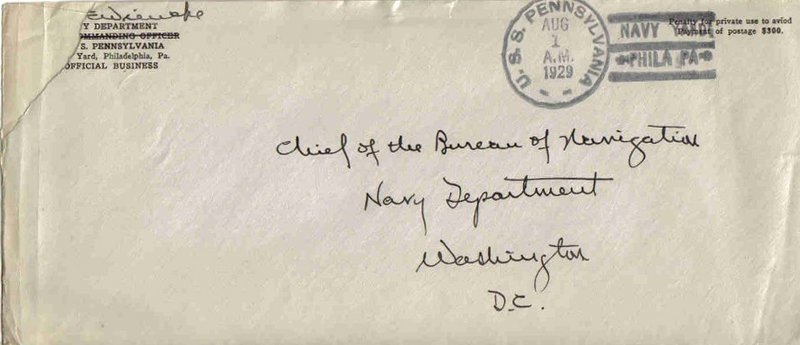 Y DEPARTMENT
OMMANDING OFFICER
S. PENNSYLVANIA
Yard, Philadelphia, Pa.
OFFICIAL BUSINESS
U.S.S. PENNSYLVANIA
AUG
1
A.M.
1929
NAVY YARD
PHILA PA
Penalty for private use to aviod
Payment of postage $300.
Chief of the Bureau of Navigation
Navy Department
Washington
D.C.